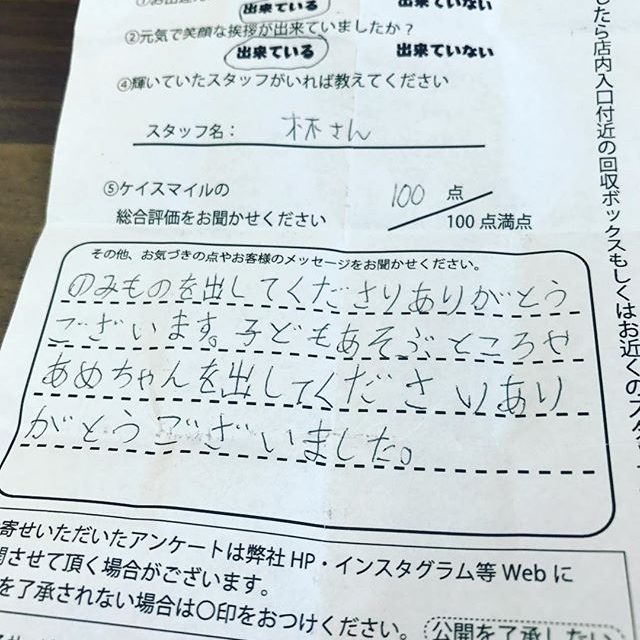 出来ている
出来ていない
②元気で笑顔な挨拶が出来ていましたか?
出来ている 出来ていない
④輝いていたスタッフがいれば教えてください
スタッフ名: 林さん
⑤ケイスマイルの
総合評価をお聞かせください
100 点
100点満点
その他、お気づきの点やお客様のメッセージをお聞かせください。
のみものを出してくださりありがとう
ございます。子どもあそぶところや
あめちゃんを出してくださりあり
がとうございました。
寄せいただいたアンケートは弊社HP・インスタグラム等Webに
開させて頂く場合がございます。
を了承されない場合は〇印をおつけください。
公開を了承しない
したら店内入口付近の回収ボックスもしくはお近くのスタ